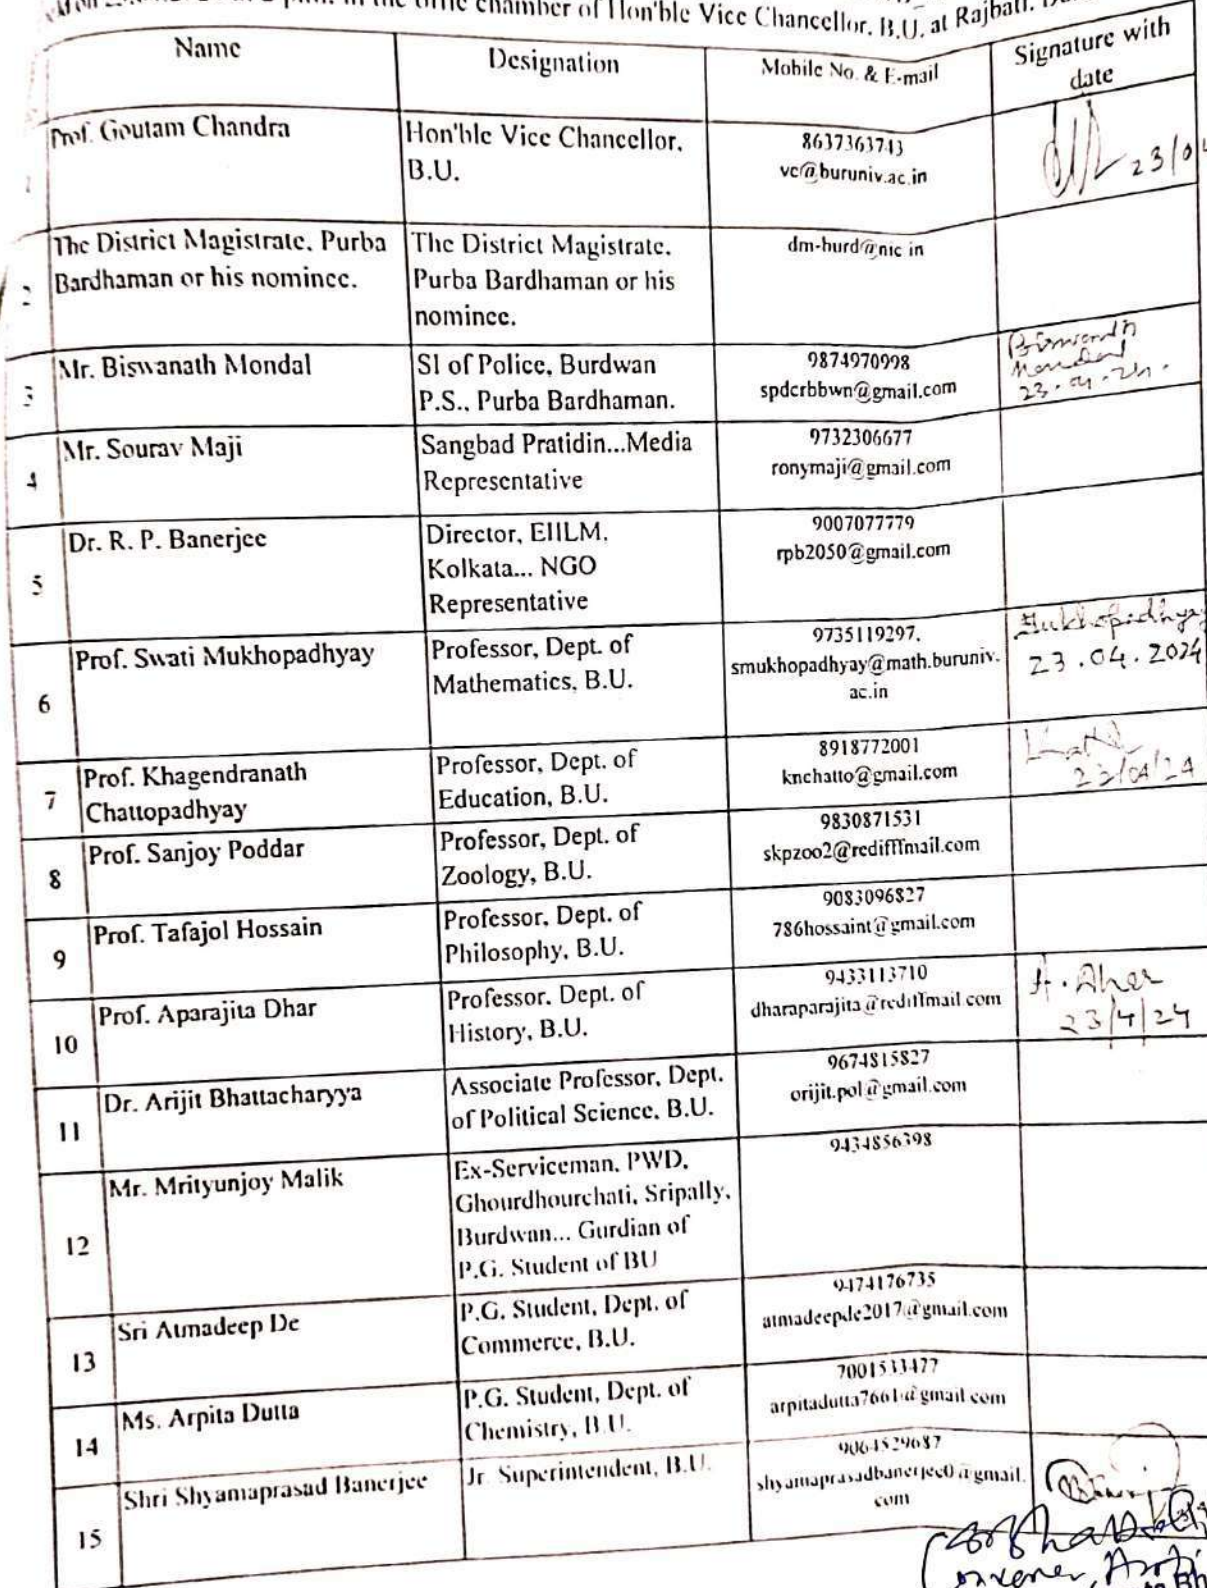 in the chamber of Hon'ble Vice Chancellor, B.U. at Rajbati,
Name Designation Mobile No. & E-mail Signature with
date
1 Prof. Goutam Chandra Hon'ble Vice Chancellor,
B.U.
8637363743
vc@buruniv.ac.in
23/04
2 The District Magistrate, Purba
Bardhaman or his nominee.
The District Magistrate,
Purba Bardhaman or his
nominee.
dm-burd@nic.in
3 Mr. Biswanath Mondal
SI of Police, Burdwan
P.S., Purba Bardhaman.
9874970998
spdcrbbwn@gmail.com
Biswanath
Mondal
23.04.24.
4 Mr. Sourav Maji
Sangbad Pratidin...Media
Representative
9732306677
ronymaji@gmail.com
5 Dr. R. P. Banerjee
Director, EIILM,
Kolkata... NGO
Representative
9007077779
rpb2050@gmail.com
6 Prof. Swati Mukhopadhyay
Professor, Dept. of
Mathematics, B.U.
9735119297,
smukhopadhyay@math.buruniv.
ac.in
Mukhopadhyay
23.04.2024
7 Prof. Khagendranath
Chattopadhyay
Professor, Dept. of
Education, B.U.
8918772001
knchatto@gmail.com
23/04/24
8 Prof. Sanjoy Poddar
Professor, Dept. of
Zoology, B.U.
9830871531
skpzoo2@rediffmail.com
9 Prof. Tafajol Hossain
Professor, Dept. of
Philosophy, B.U.
9083096827
786hossaint@gmail.com
10 Prof. Aparajita Dhar
Professor, Dept. of
History, B.U.
9433113710
dharaparajita@rediffmail.com
A. Dhar
23/4/24
11 Dr. Arijit Bhattacharyya
Associate Professor, Dept.
of Political Science, B.U.
9674815827
orijit.pol@gmail.com
12 Mr. Mrityunjoy Malik
Ex-Serviceman, PWD,
Ghourdhourchati, Sripally,
Burdwan... Gurdian of
P.G. Student of BU
9434856398
13 Sri Atmadeep De
P.G. Student, Dept. of
Commerce, B.U.
9474176735
atmadeepde2017@gmail.com
14 Ms. Arpita Dutta
P.G. Student, Dept. of
Chemistry, B.U.
7001533477
arpitadutta7661@gmail.com
15 Shri Shyamaprasad Banerjee
Jr. Superintendent, B.U.
9064529687
shyamaprasadbanerjee0@gmail.
com